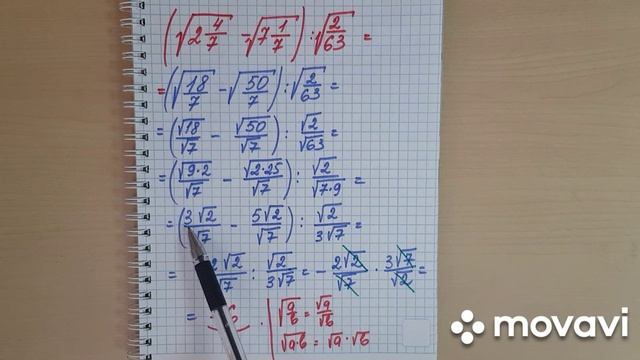 (√2 4/7 - √7 1/7) : √2/63 =
= (√18/7 - √50/7) : √2/63 =
= (√18/√7 - √50/√7) : √2/√63 =
= (√9·2/√7 - √2·25/√7) : √2/√7·9 =
= (3√2/√7 - 5√2/√7) : √2/3√7 =
= 2√2/√7 : √2/3√7 = - 2√2/√7 · 3√7/√2 =
= 6.
√a/b = √a/√b
√a·b = √a · √b
movavi